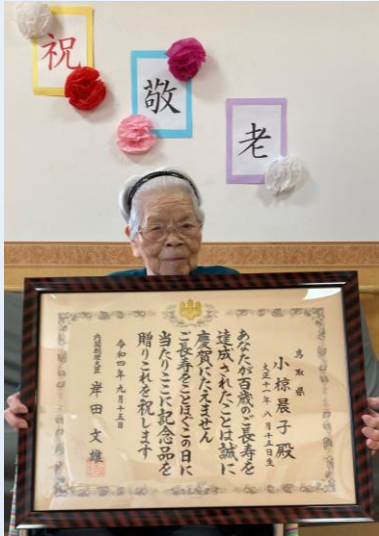 祝
敬
老
鳥取県
小椋晨子殿
大正十一年八月十五日生
あなたが百歳のご長寿を
達成されたことは誠に
慶賀にたえません
ご長寿をことほぐこの日に
当たりここに記念品を
贈りこれを祝します
令和四年九月十五日
内閣総理大臣 岸田文雄